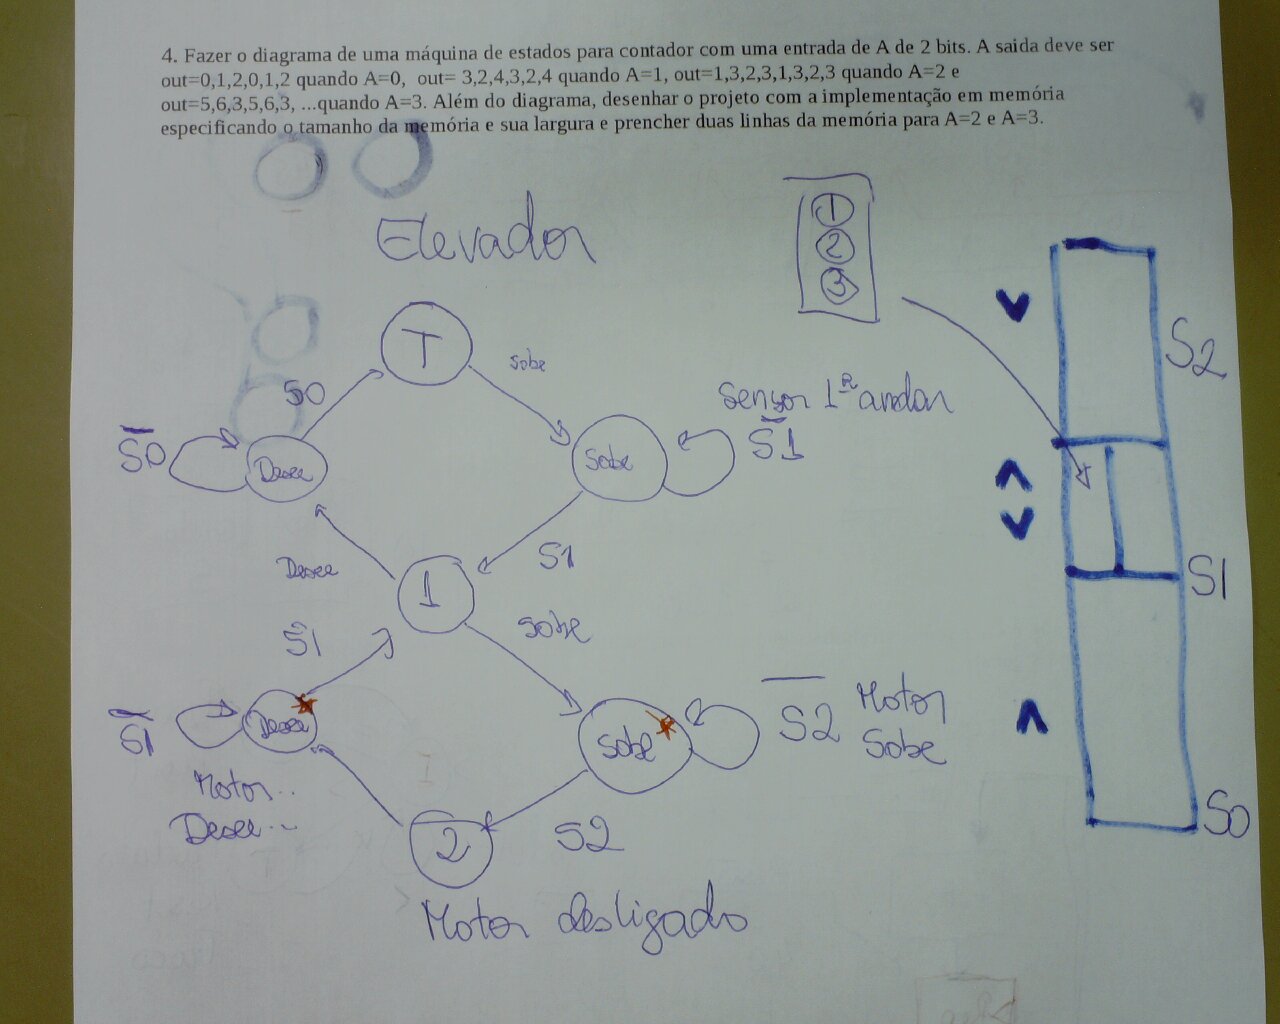 4. Fazer o diagrama de uma máquina de estados para contador com uma entrada de A de 2 bits. A saida deve ser
out=0,1,2,0,1,2 quando A=0, out= 3,2,4,3,2,4 quando A=1, out=1,3,2,3,1,3,2,3 quando A=2 e
out=5,6,3,5,6,3, ...quando A=3. Além do diagrama, desenhar o projeto com a implementação em memória
especificando o tamanho da memória e sua largura e prencher duas linhas da memória para A=2 e A=3.
Elevador
1
2
3
T
sobe
S2
S0
Sensor 1º andar
S̅0
Desce
Sobe
S̅1
Desce
1
S1
S1
S1
sobe
S̅1
Desce
Sobe
S̅2 Motor
Sobe
Motor..
Desce..
2
S2
S0
Motor desligado